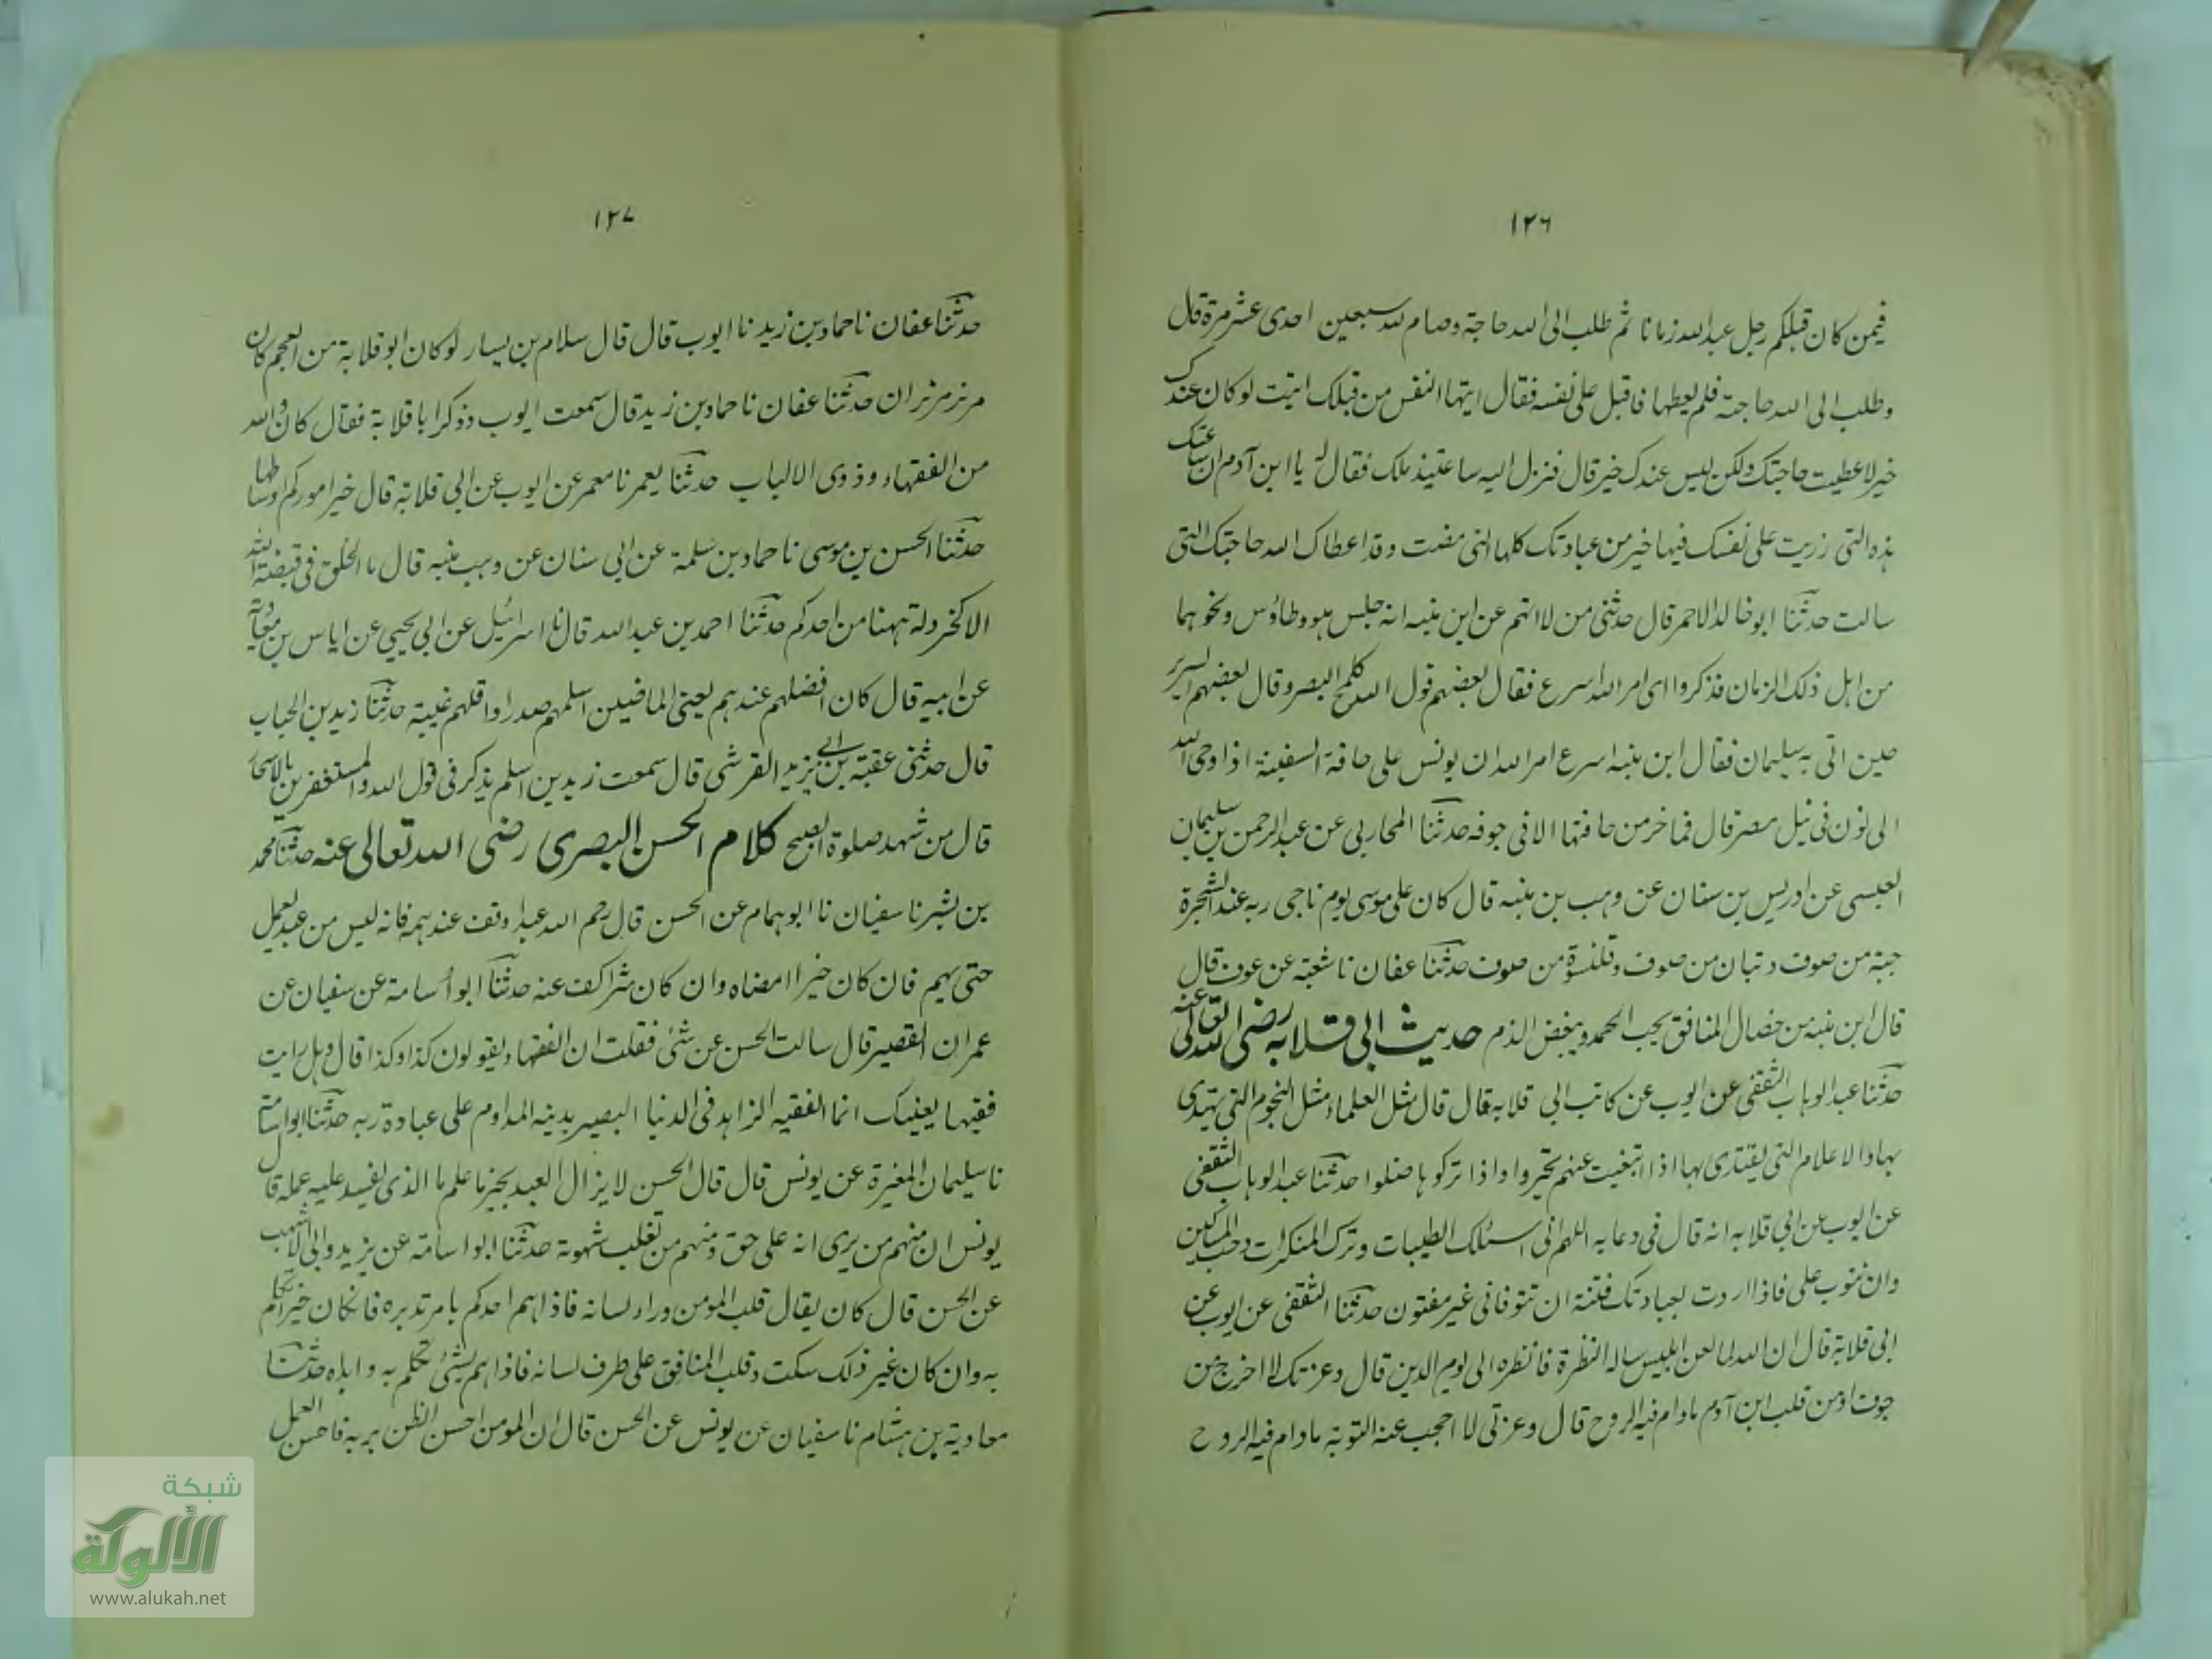 ١٢٦
فيمن كان قبلكم رجل عبد الله زمانا ثم طلب الى الله حاجة وصام لله سبعين احدى عشر مرة قال
وطلب الى الله حاجته فلم يعطها فاقبل على نفسه فقال ايتها النفس من قبلك اتيت لو كان عندك
خير لاعطيت حاجتك ولكن ليس عندك خير قال فنزل اليه ساعتيذ ملك فقال له يا ابن آدم ان ساعتك
هذه التى زريت على نفسك فيها خير من عبادتك كلها التى مضت وقد اعطاك الله حاجتك التى
سالت حدثنا ابو خالد الاحمر قال حدثنى من لا اتهم عن ابن منبه انه جلس هو وطاؤس ونحوهما
من اهل ذلك الزمان فذكروا اى امر الله اسرع فقال بعضهم قول الله كلمح البصر وقال بعضهم السرير
حين اتى به سليمان فقال ابن منبه اسرع امر الله ان يونس على حافة السفينة اذ اوحى الله
الى نون فى نيل مصر قال فما خر من حافتها الا فى جوفه حدثنا المحاربى عن عبد الرحمن بن سليمان
العبسى عن ادريس بن سنان عن وهب بن منبه قال كان على موسى يوم ناجى ربه عند الشجرة
جبة من صوف وتبان من صوف وقلنسوة من صوف حدثنا عفان نا شعبة عن عوف قال
قال ابن منبه من خصال المنافق يحب الحمد ويبغض الذم حديث ابى قلابه رضى الله تعالى عنه
حدثنا عبد الوهاب الثقفى عن ايوب عن كاتب ابى قلابه قال قال مثل العلماء مثل النجوم التى يهتدى
بها والاعلام التى يقتدى بها اذا تغيبت عنهم تحيروا واذا تركوها ضلوا حدثنا عبد الوهاب الثقفى
عن ايوب عن ابى قلابه انه قال فى دعايه اللهم انى اسئلك الطيبات وترك المنكرات وحب المساكين
وان تتوب على فاذا اردت بعبادتك فتنة ان تتوفانى غير مفتون حدثنا الثقفى عن ايوب عن
ابى قلابة قال ان الله لما لعن ابليس ساله النظرة فانظره الى يوم الدين قال وعزتك لا اخرج من
جوف او من قلب ابن آدم ما دام فيه الروح قال وعزتى لا احجب عنه التوبة ما دام فيه الروح
١٢٧
حدثنا عفان نا حماد بن زيد نا ايوب قال قال سلام بن يسار لو كان ابو قلابة من العجم كان
مرزمزبران حدثنا عفان نا حماد بن زيد قال سمعت ايوب وذكر ابا قلابة فقال كان والله
من الفقهاء وذوى الالباب حدثنا يعمر نا معمر عن ايوب عن ابى قلابة قال خير اموركم اوساطها
حدثنا الحسن بن موسى نا حماد بن سلمة عن ابى سنان عن وهب منبه قال ما الخلق فى قبضة الله
الا كخردلة ههنا من احدكم حدثنا احمد بن عبد الله قال نا اسرائيل عن ابى يحيى عن اياس بن معاوية
عن ابيه قال كان افضلهم عندهم يعنى الماضيين اسلمهم صدرا واقلهم غيبة حدثنا زيد بن الحباب
قال حدثنى عقبة بن ابى يزيد القرشى قال سمعت زيد بن اسلم يذكر فى قول الله والمستغفرين بالاسحار
قال من شهد صلوة الصبح كلام الحسن البصرى رضى الله تعالى عنه حدثنا محمد
بن بشر نا سفيان نا ابو همام عن الحسن قال رحم الله عبدا وقف عند همه فانه ليس من عبد يعمل
حتى يهم فان كان خيرا امضاه وان كان شرا كف عنه حدثنا ابو أسامة عن سفيان عن
عمران القصير قال سالت الحسن عن شئ فقلت ان الفقهاء يقولون كذا وكذا قال وهل رايت
فقيها بعينيك انما الفقيه الزاهد فى الدنيا البصير بدينه المداوم على عبادة ربه حدثنا ابو اسامة
نا سليمان المغيرة عن يونس قال قال الحسن لا يزال العبد بخير ما علم ما الذى يفسد عليه عمله قال
يونس ان منهم من يرى انه على حق ومنهم من تغلب شهوة حدثنا ابو اسامة عن يزيد وابى الاشهب
عن الحسن قال كان يقال قلب المومن وراء لسانه فاذا هم احدكم بامر تدبره فان كان خيرا تكلم
به وان كان غير ذلك سكت وقلب المنافق على طرف لسانه فاذا هم بشئ تكلم به وابداه حدثنا
معاوية بن هشام نا سفيان عن يونس عن الحسن قال ان المومن احسن الظن بربه فاحسن العمل
شبكة
الألوكة
www.alukah.net